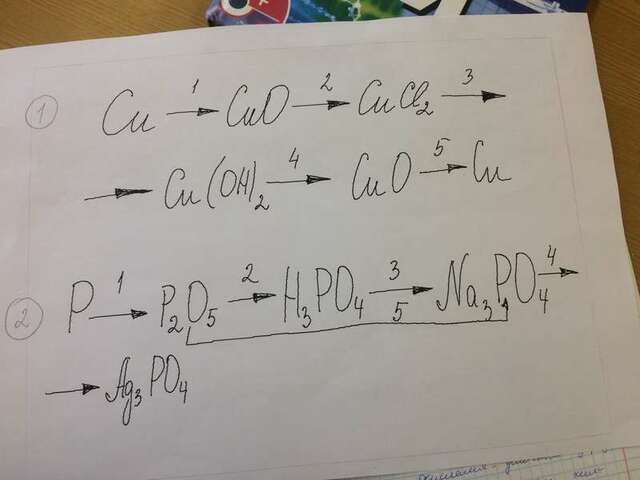 1 Cu →1 CuO →2 CuCl₂ →3
→ Cu(OH)₂ →4 CuO →5 Cu
2 P →1 P₂O₅ →2 H₃PO₄ →3 5 Na₃PO₄ →4
→ Ag₃PO₄